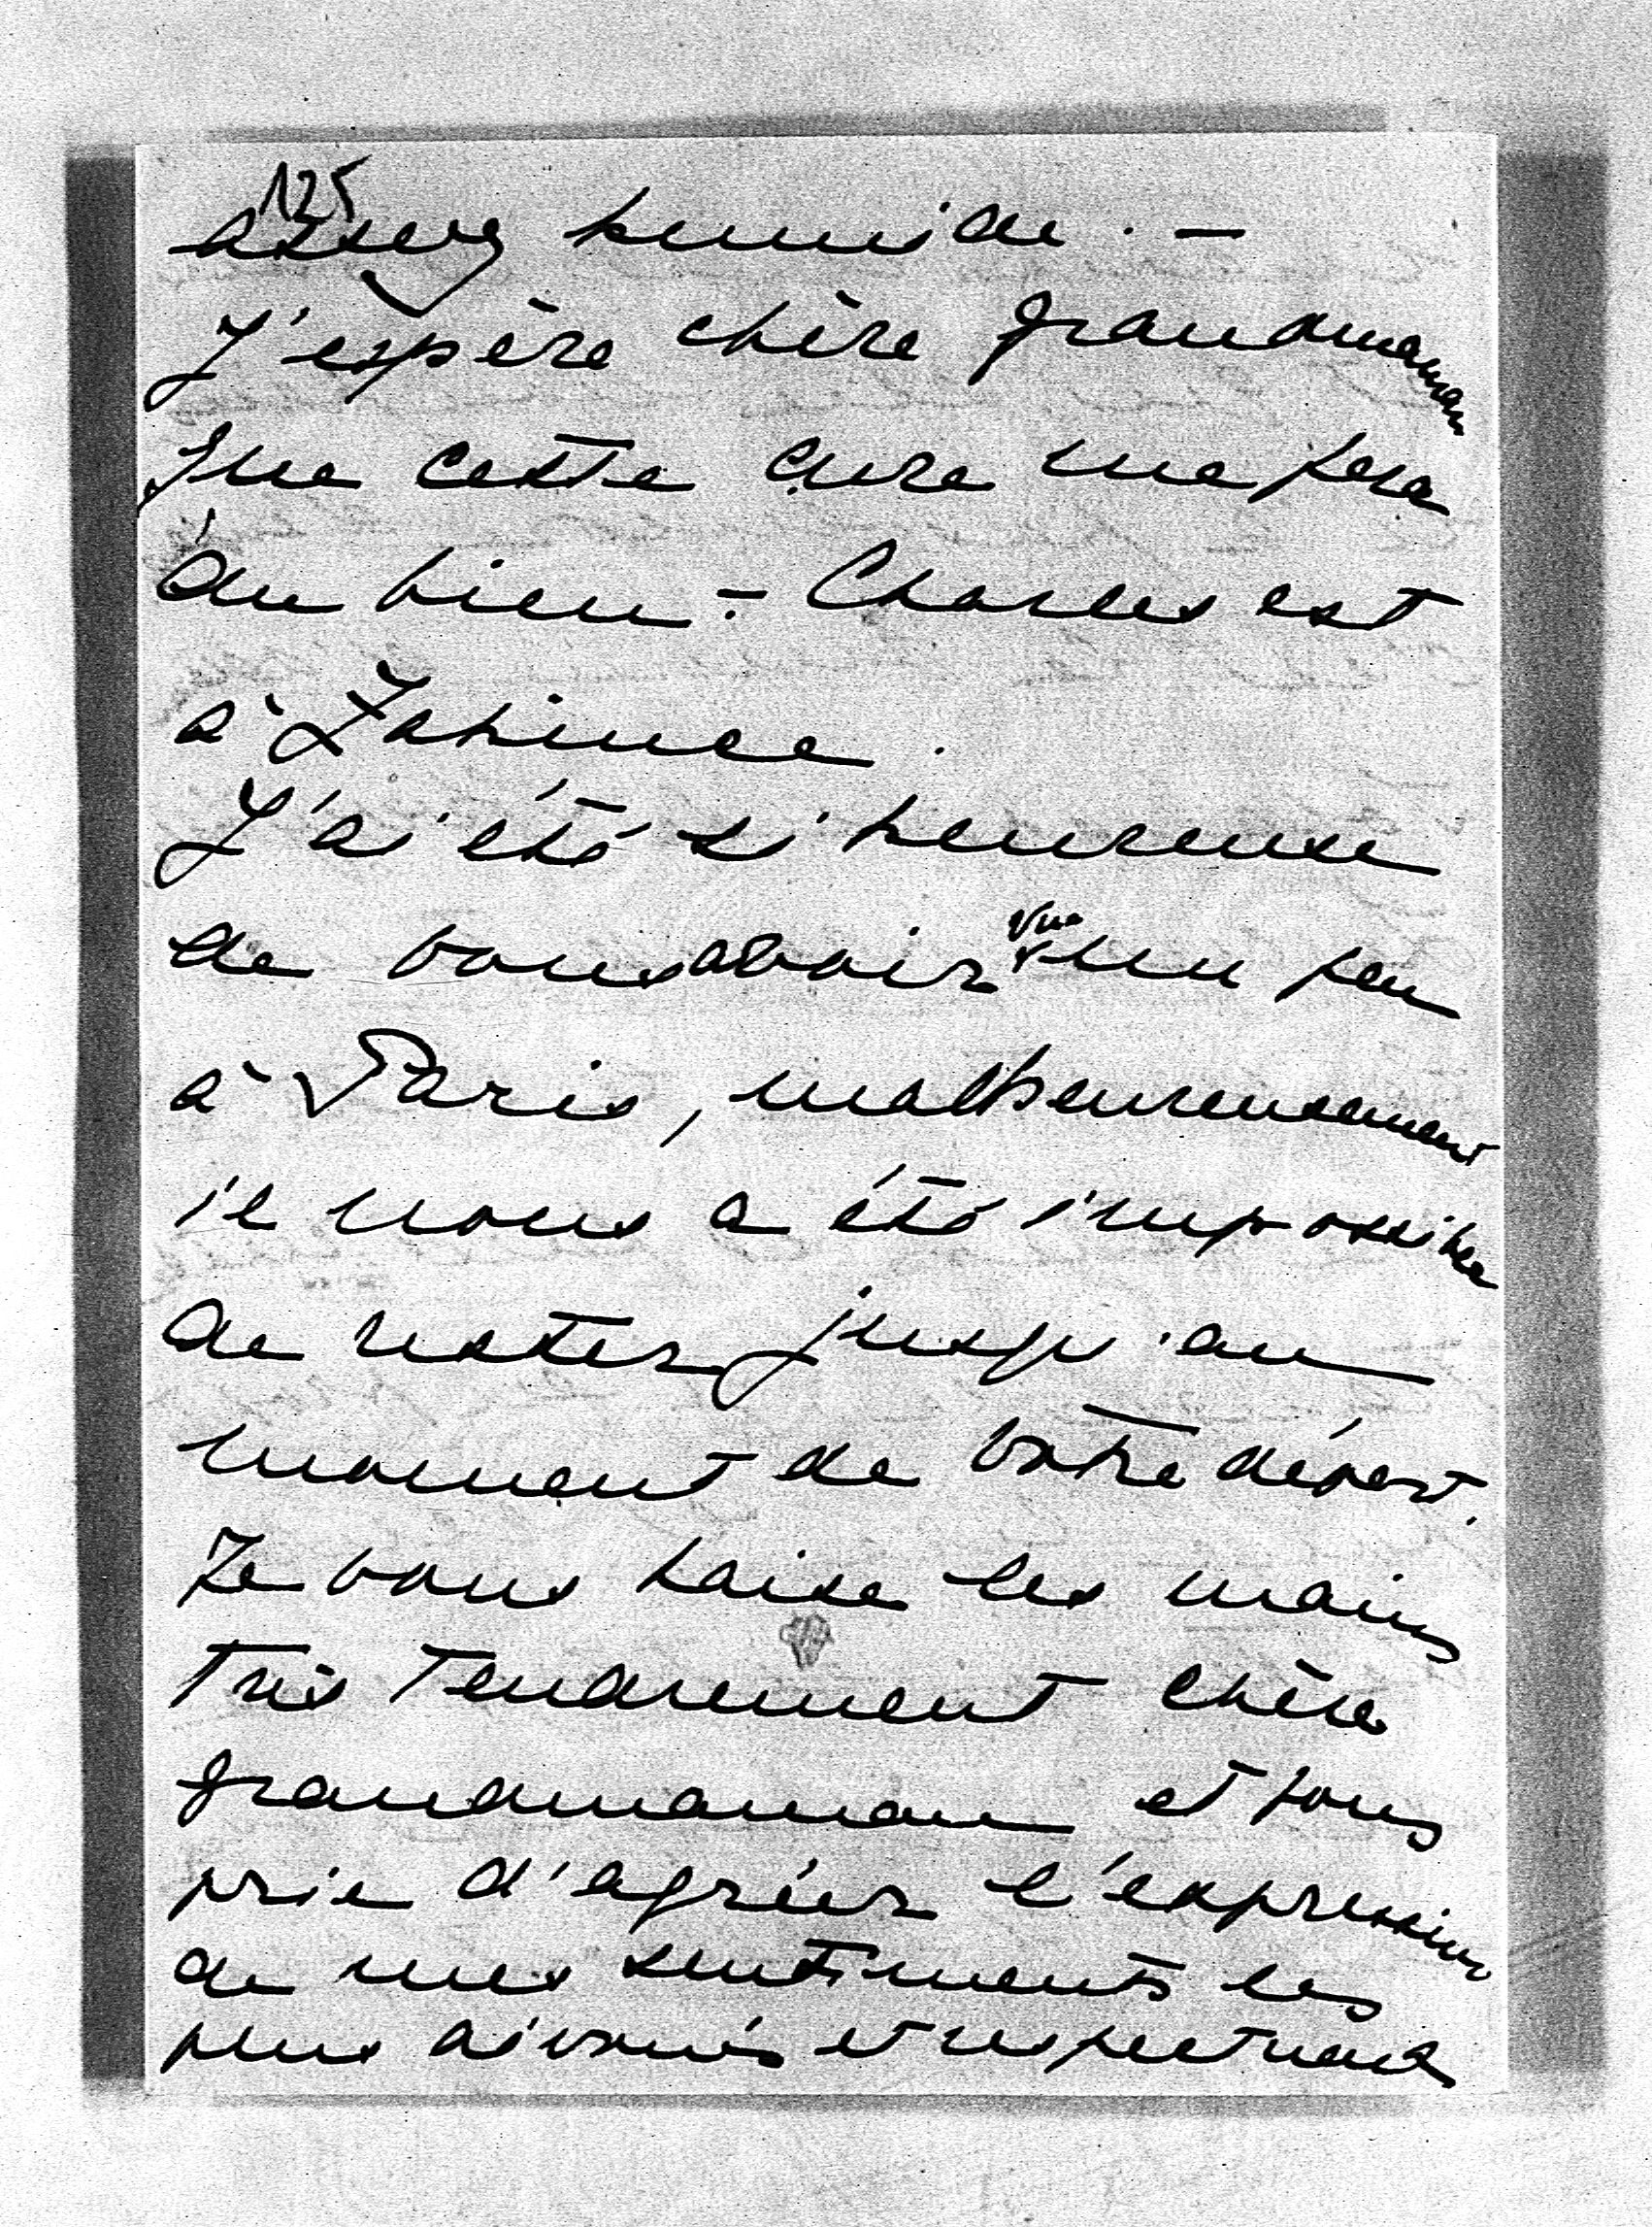 125
assez humide. —
J'espère chère grandmaman
que cette cure me fera
du bien - Charles est
à Zahinee.
J'ai été si heureuse
de vous avoir vue un peu
à Paris, malheureusement
il nous a été impossible
de rester jusqu'au
moment de votre départ.
Je vous baise les mains
très tendrement chère
grandmaman et vous
prie d'agréer l'expression
de mes sentiments les
plus dévoués et respectueux